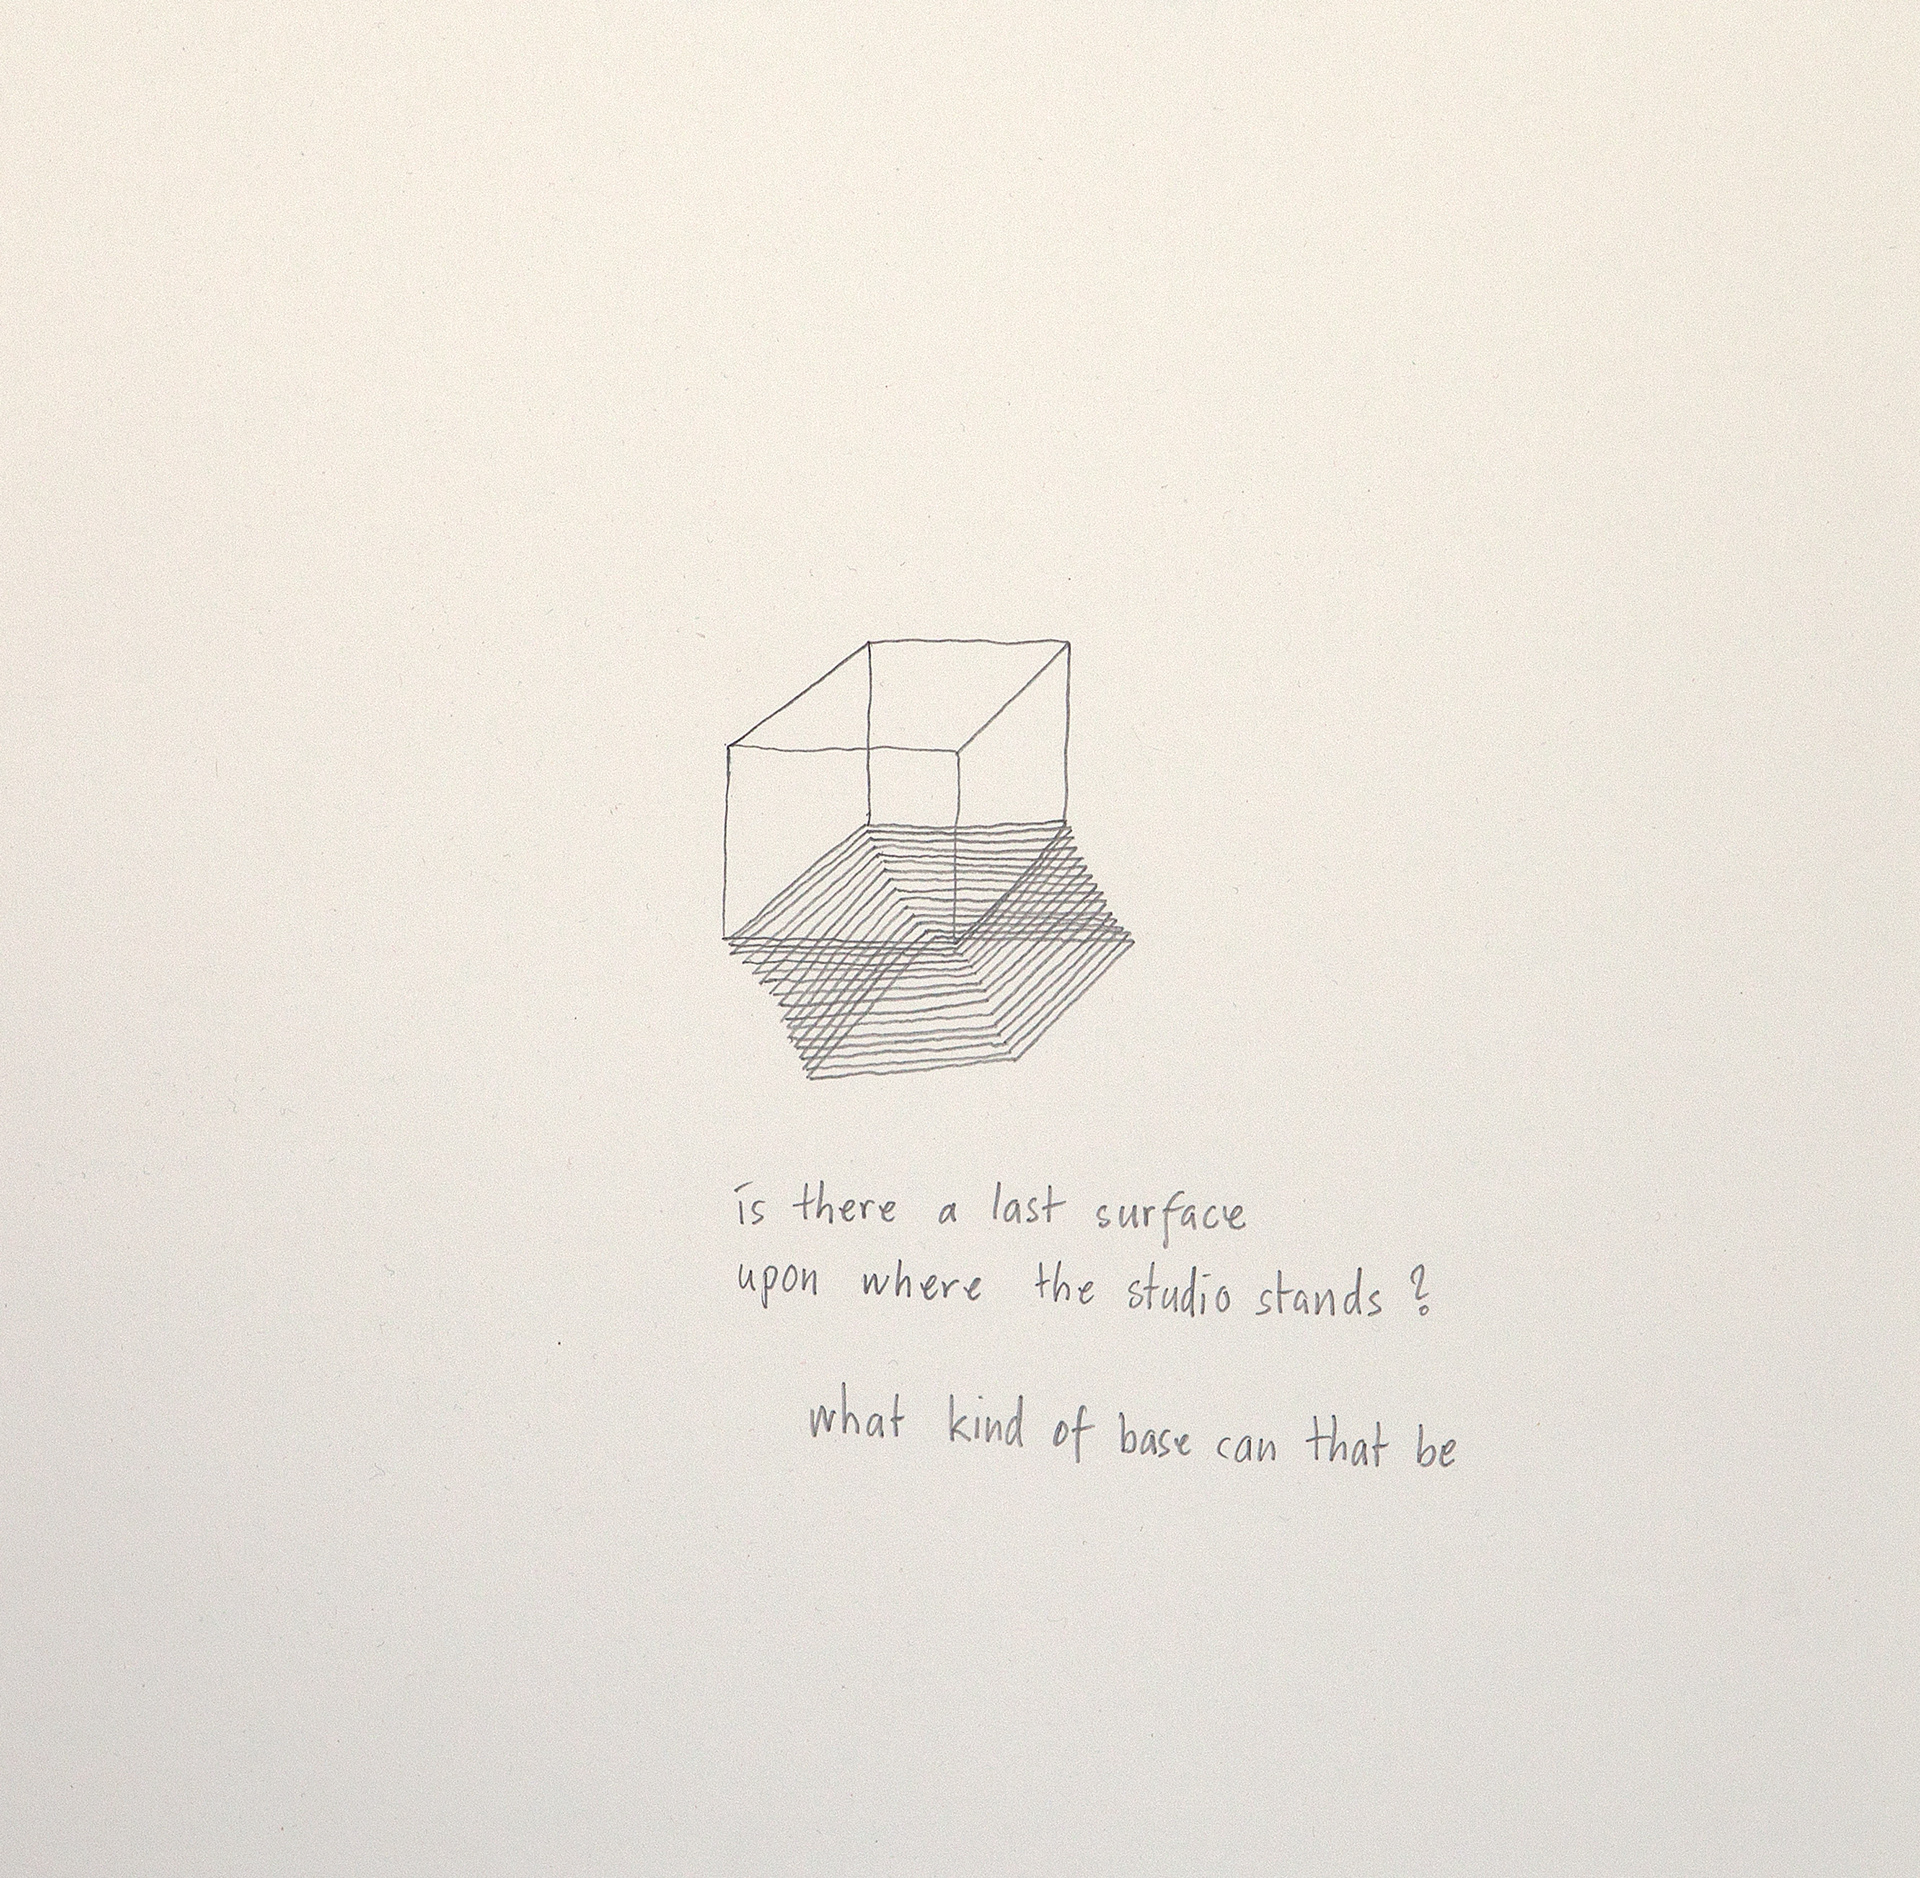 is there a last surface
upon where the studio stands?
what kind of base can that be